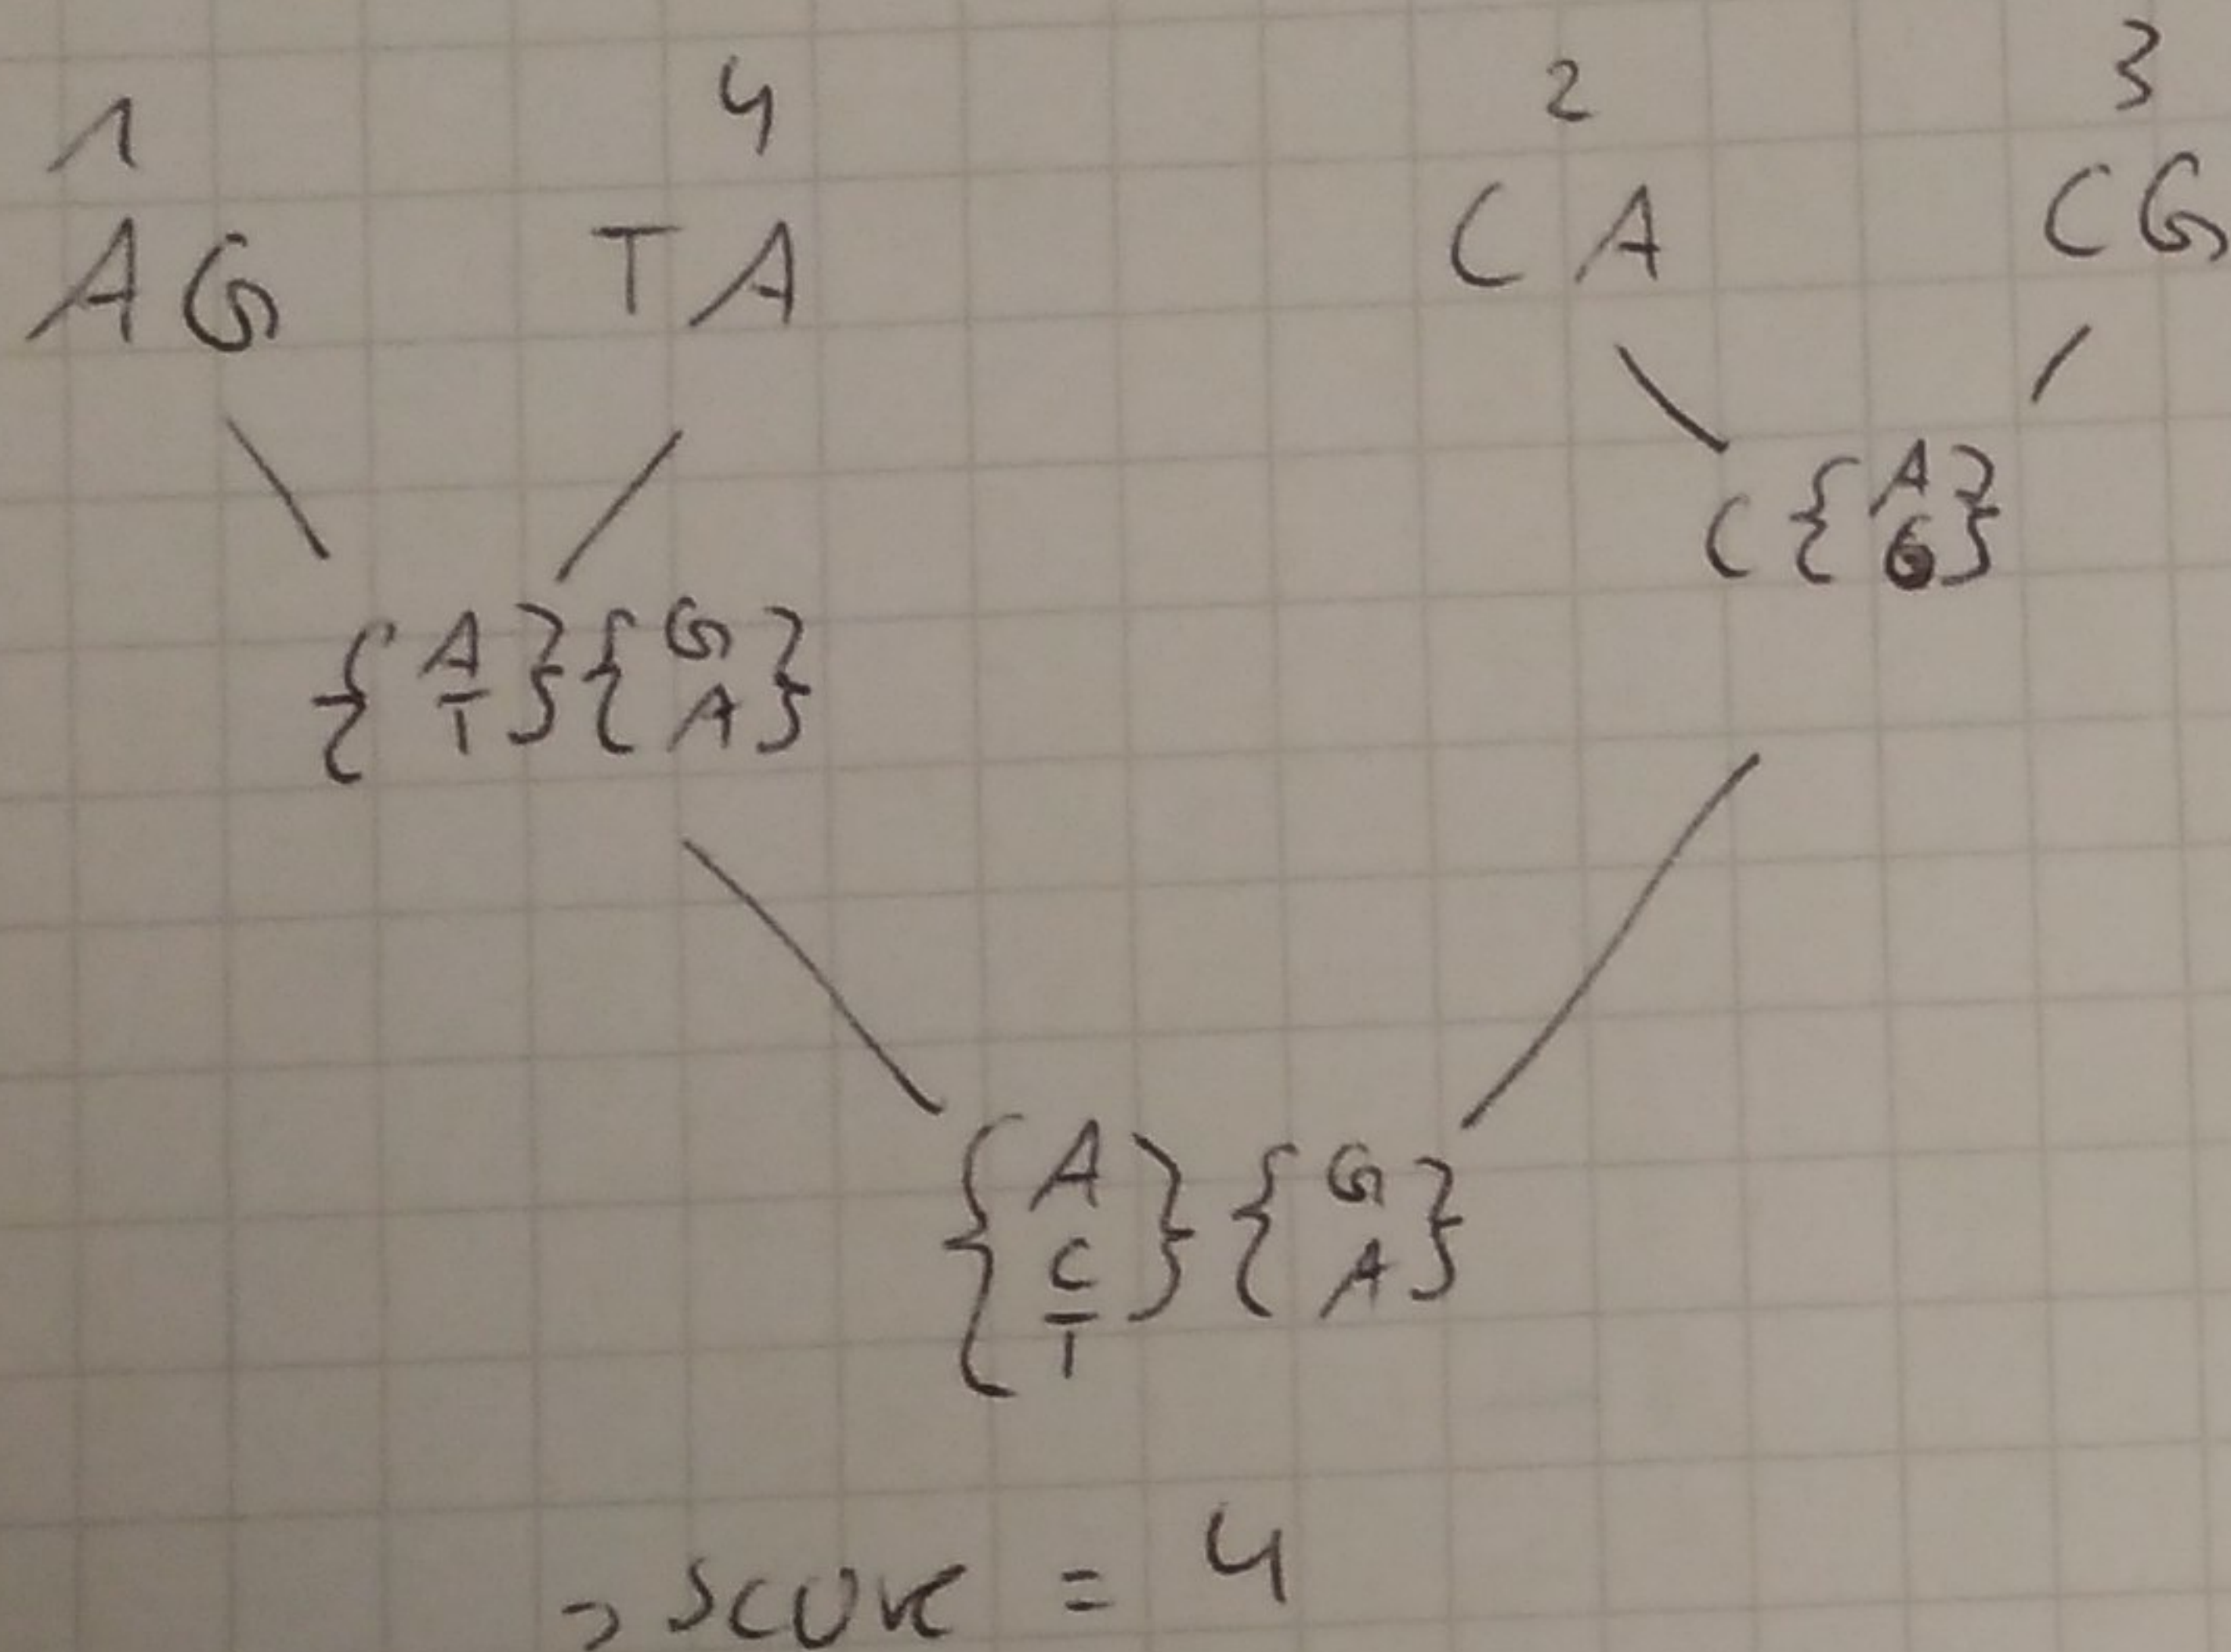 1 4 2 3
AG TA CA CG
C{A G}
{A T}{G A}
{A C T}{G A}
→ score = 4